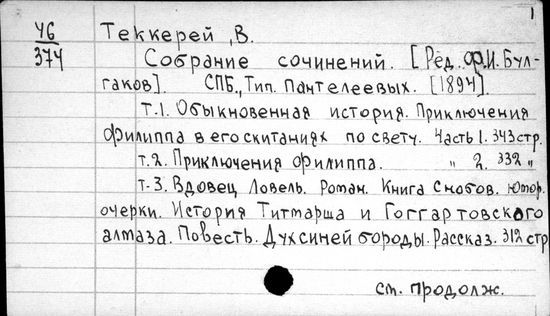 1
Ч6 Теккерей, В.
374 Собрание сочинений. [Ред. Ф.И. Бул-
гаков]. СПБ., Тип. Пантелеевых. [1894].
т.1. Обыкновенная история. Приключения
Филиппа в его скитаниях по свету. Часть 1. 343 стр.
т.2. Приключения Филиппа. " 2. 332 "
т.3. Вдовец Ловель. Роман. Книга Снобов. Юмор.
очерки. История Титмарша и Гоггартовского
алмаза. Повесть. Дух синей бороды. Рассказ. 312 стр
см. продолж.